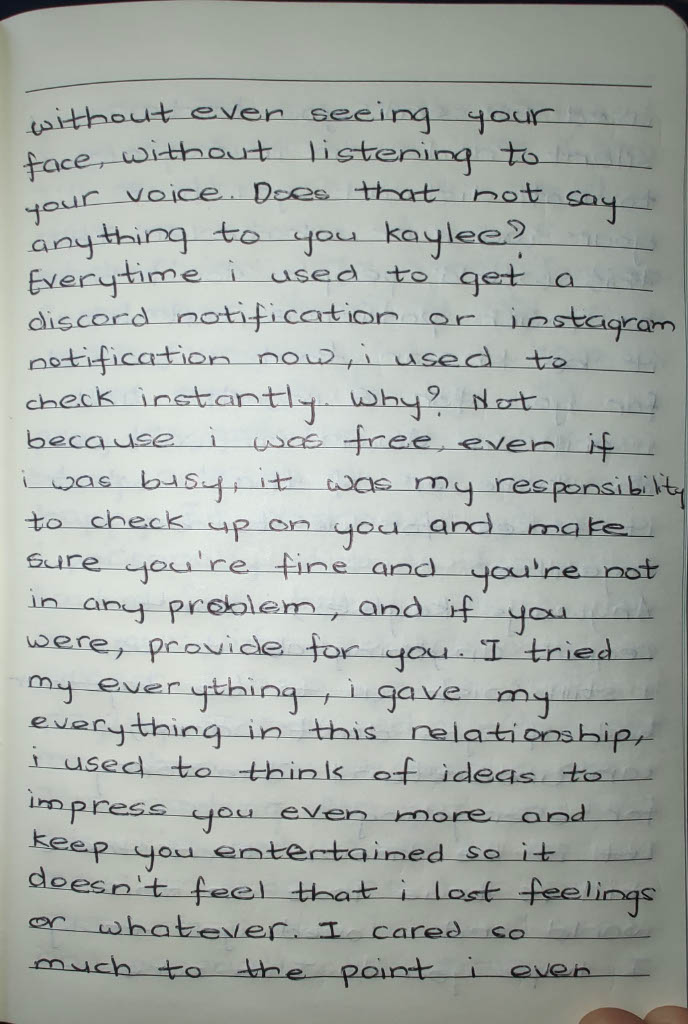 without ever seeing your
face, without listening to
your voice. Does that not say
anything to you kaylee?
Everytime i used to get a
discord notification or instagram
notification now, i used to
check instantly. Why? Not
because i was free, even if
i was busy, it was my responsibility
to check up on you and make
sure you're fine and you're not
in any problem, and if you
were, provide for you. I tried
my everything, i gave my
everything in this relationship,
i used to think of ideas to
impress you even more and
keep you entertained so it
doesn't feel that i lost feelings
or whatever. I cared so
much to the point i even